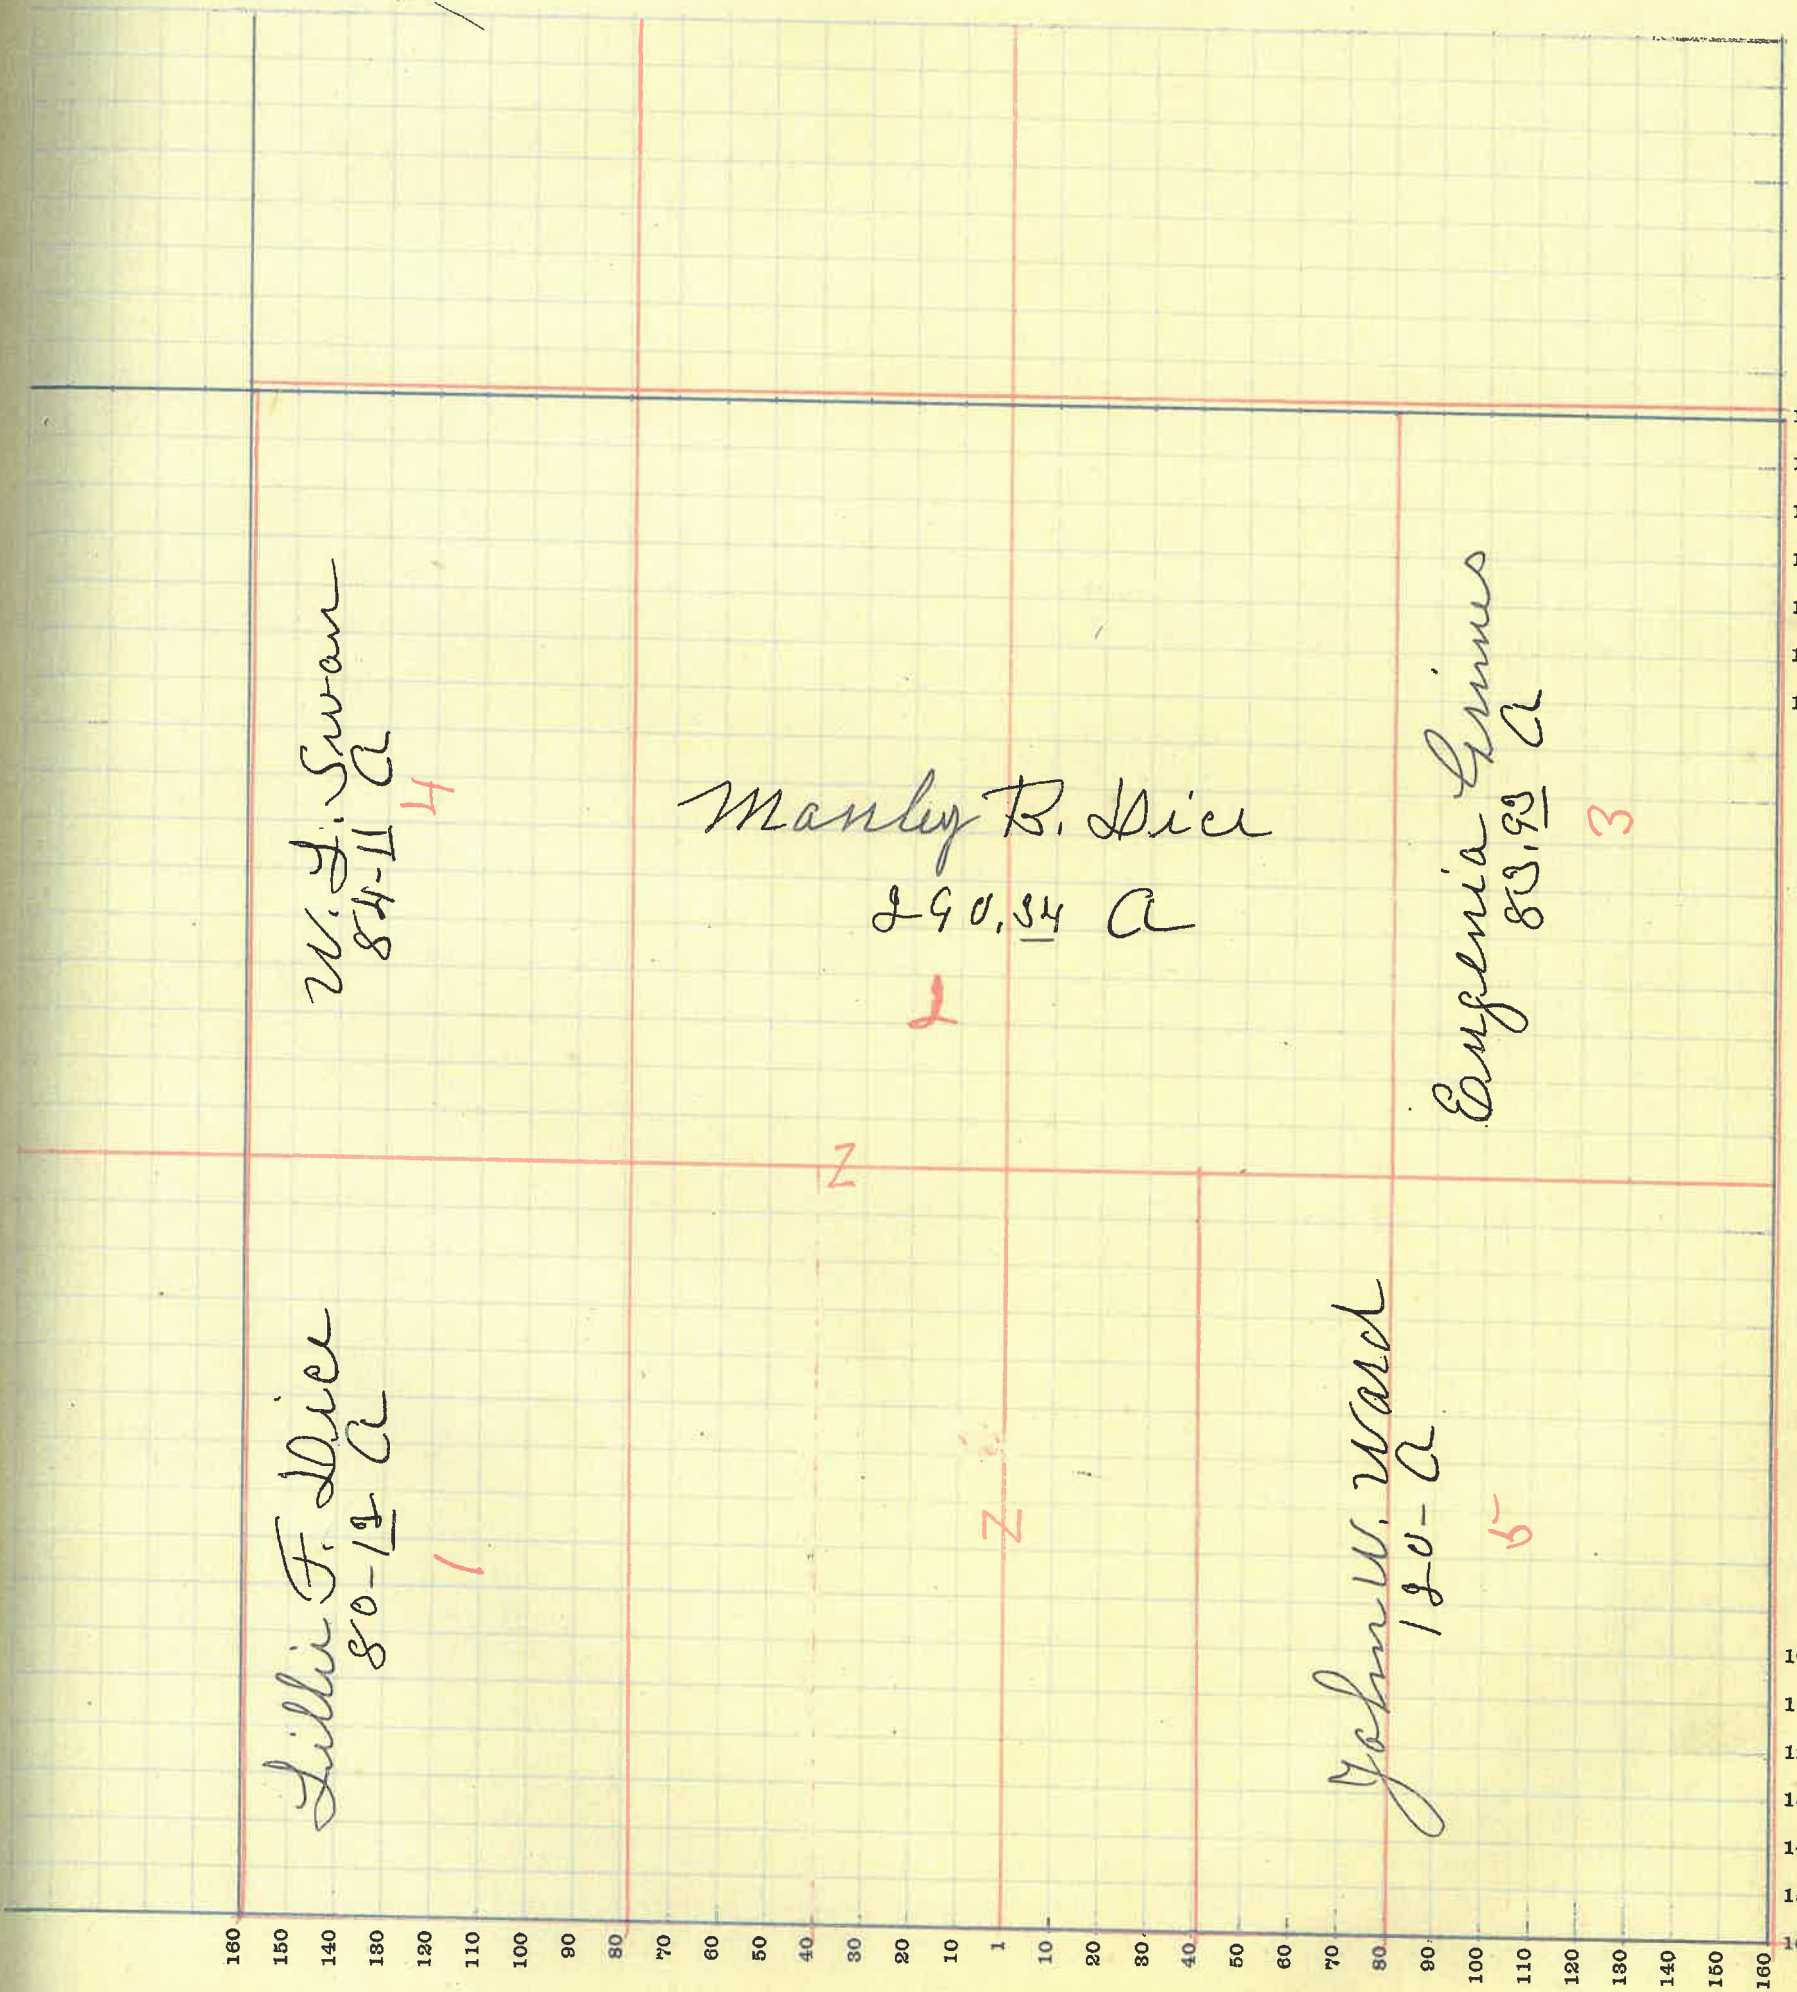 W. L. Swan
84-11 A
4
Manley B. Dice
290.34 A
2
Eugenia Grimes
83.93 A
3
Z
Lillie F. Dice
80-12 A
1
Z
John W. Ward
120- A
5
160
150
140
130
120
110
100
90
80
70
60
50
40
30
20
10
1
10
20
30
40
50
60
70
80
90
100
110
120
130
140
150
160